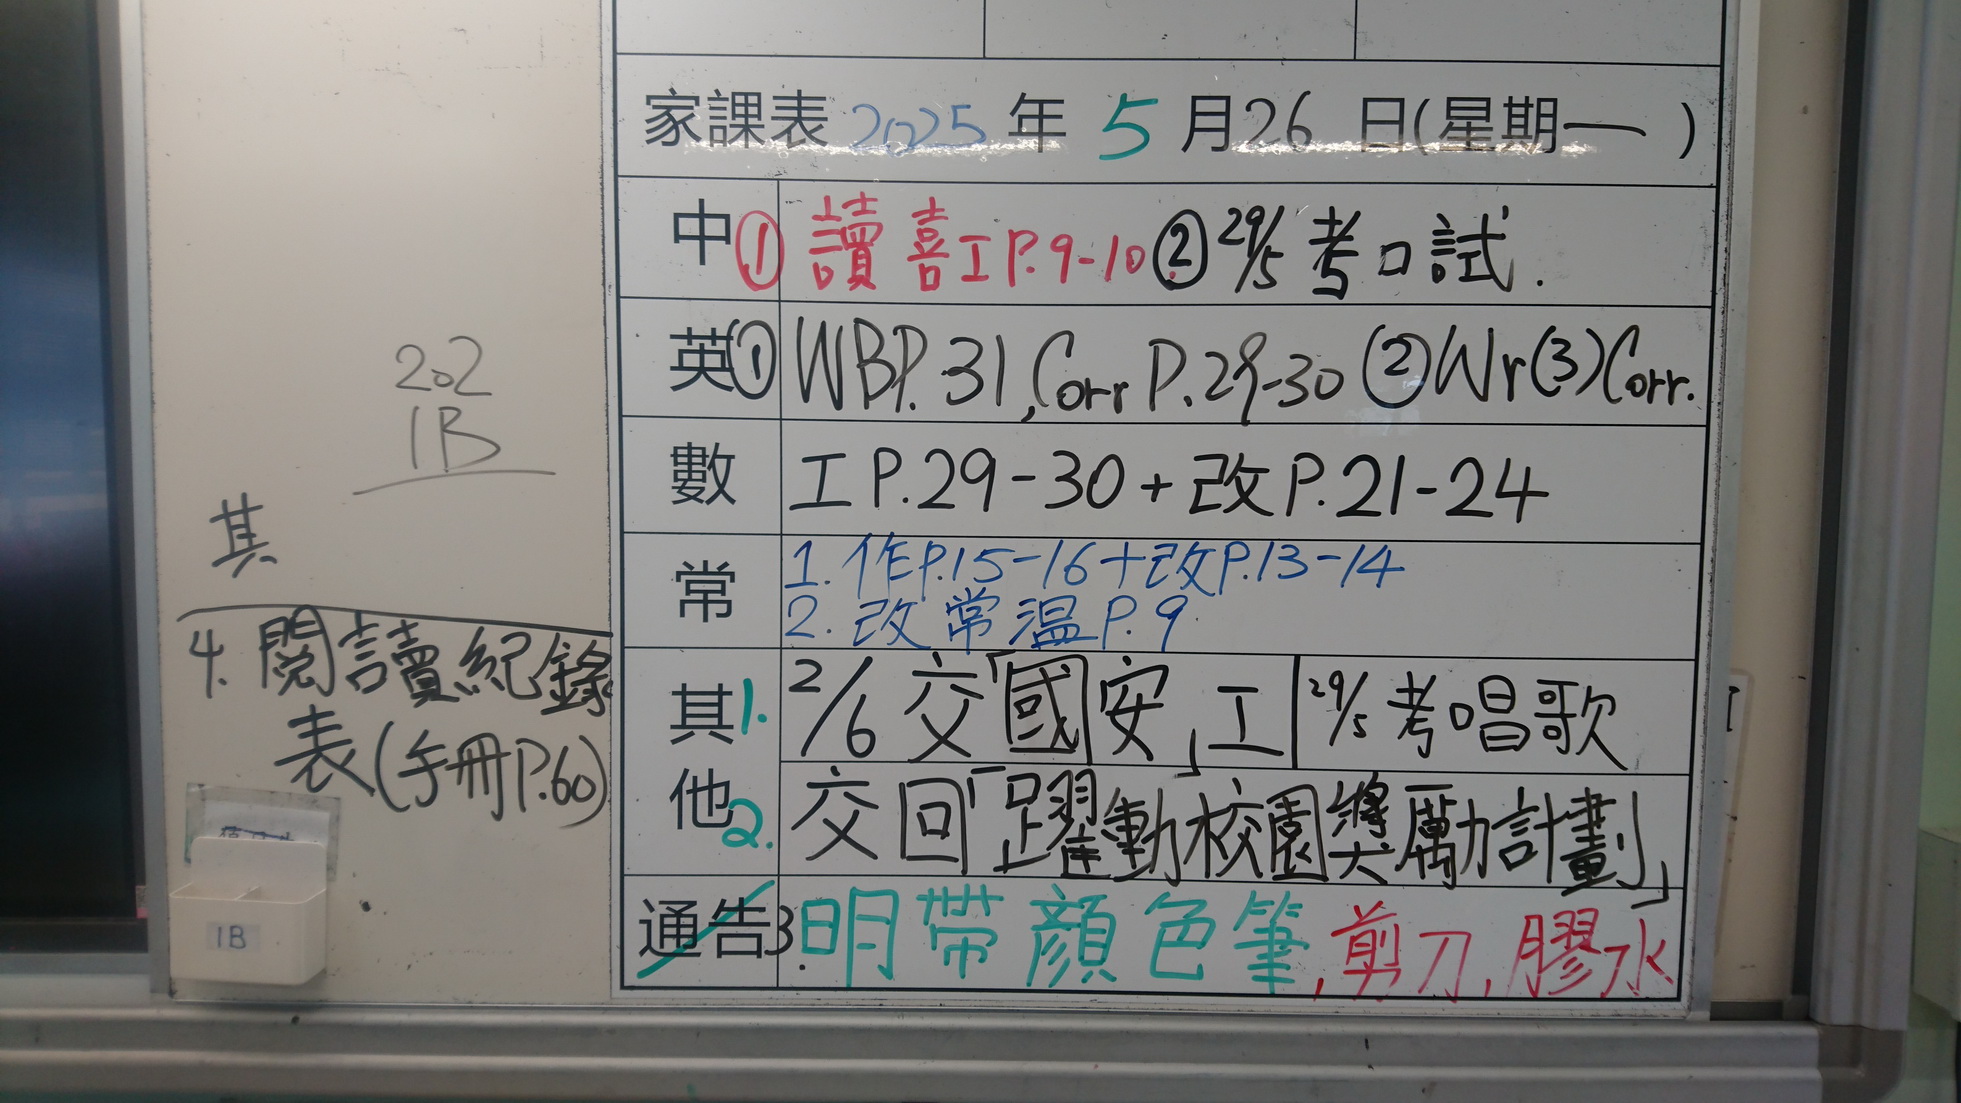 家課表 2025 年 5 月 26 日(星期一)
中 ① 讀喜工P.9-10 ② 29/5 考口試.
英 ① WBP.31, Corr P.29-30 ② Wr(3) Corr.
數 工P.29-30+改P.21-24
常 1. 作P.15-16+改P.13-14
2. 改常溫P.9
其他 1. 2/6 交「國安」工 | 29/5 考唱歌
2. 交回「躍動校園獎勵計劃」
通告 3. 明帶顏色筆, 剪刀, 膠水
202
1B
其
4. 閱讀紀錄
表(手冊P.60)
1B